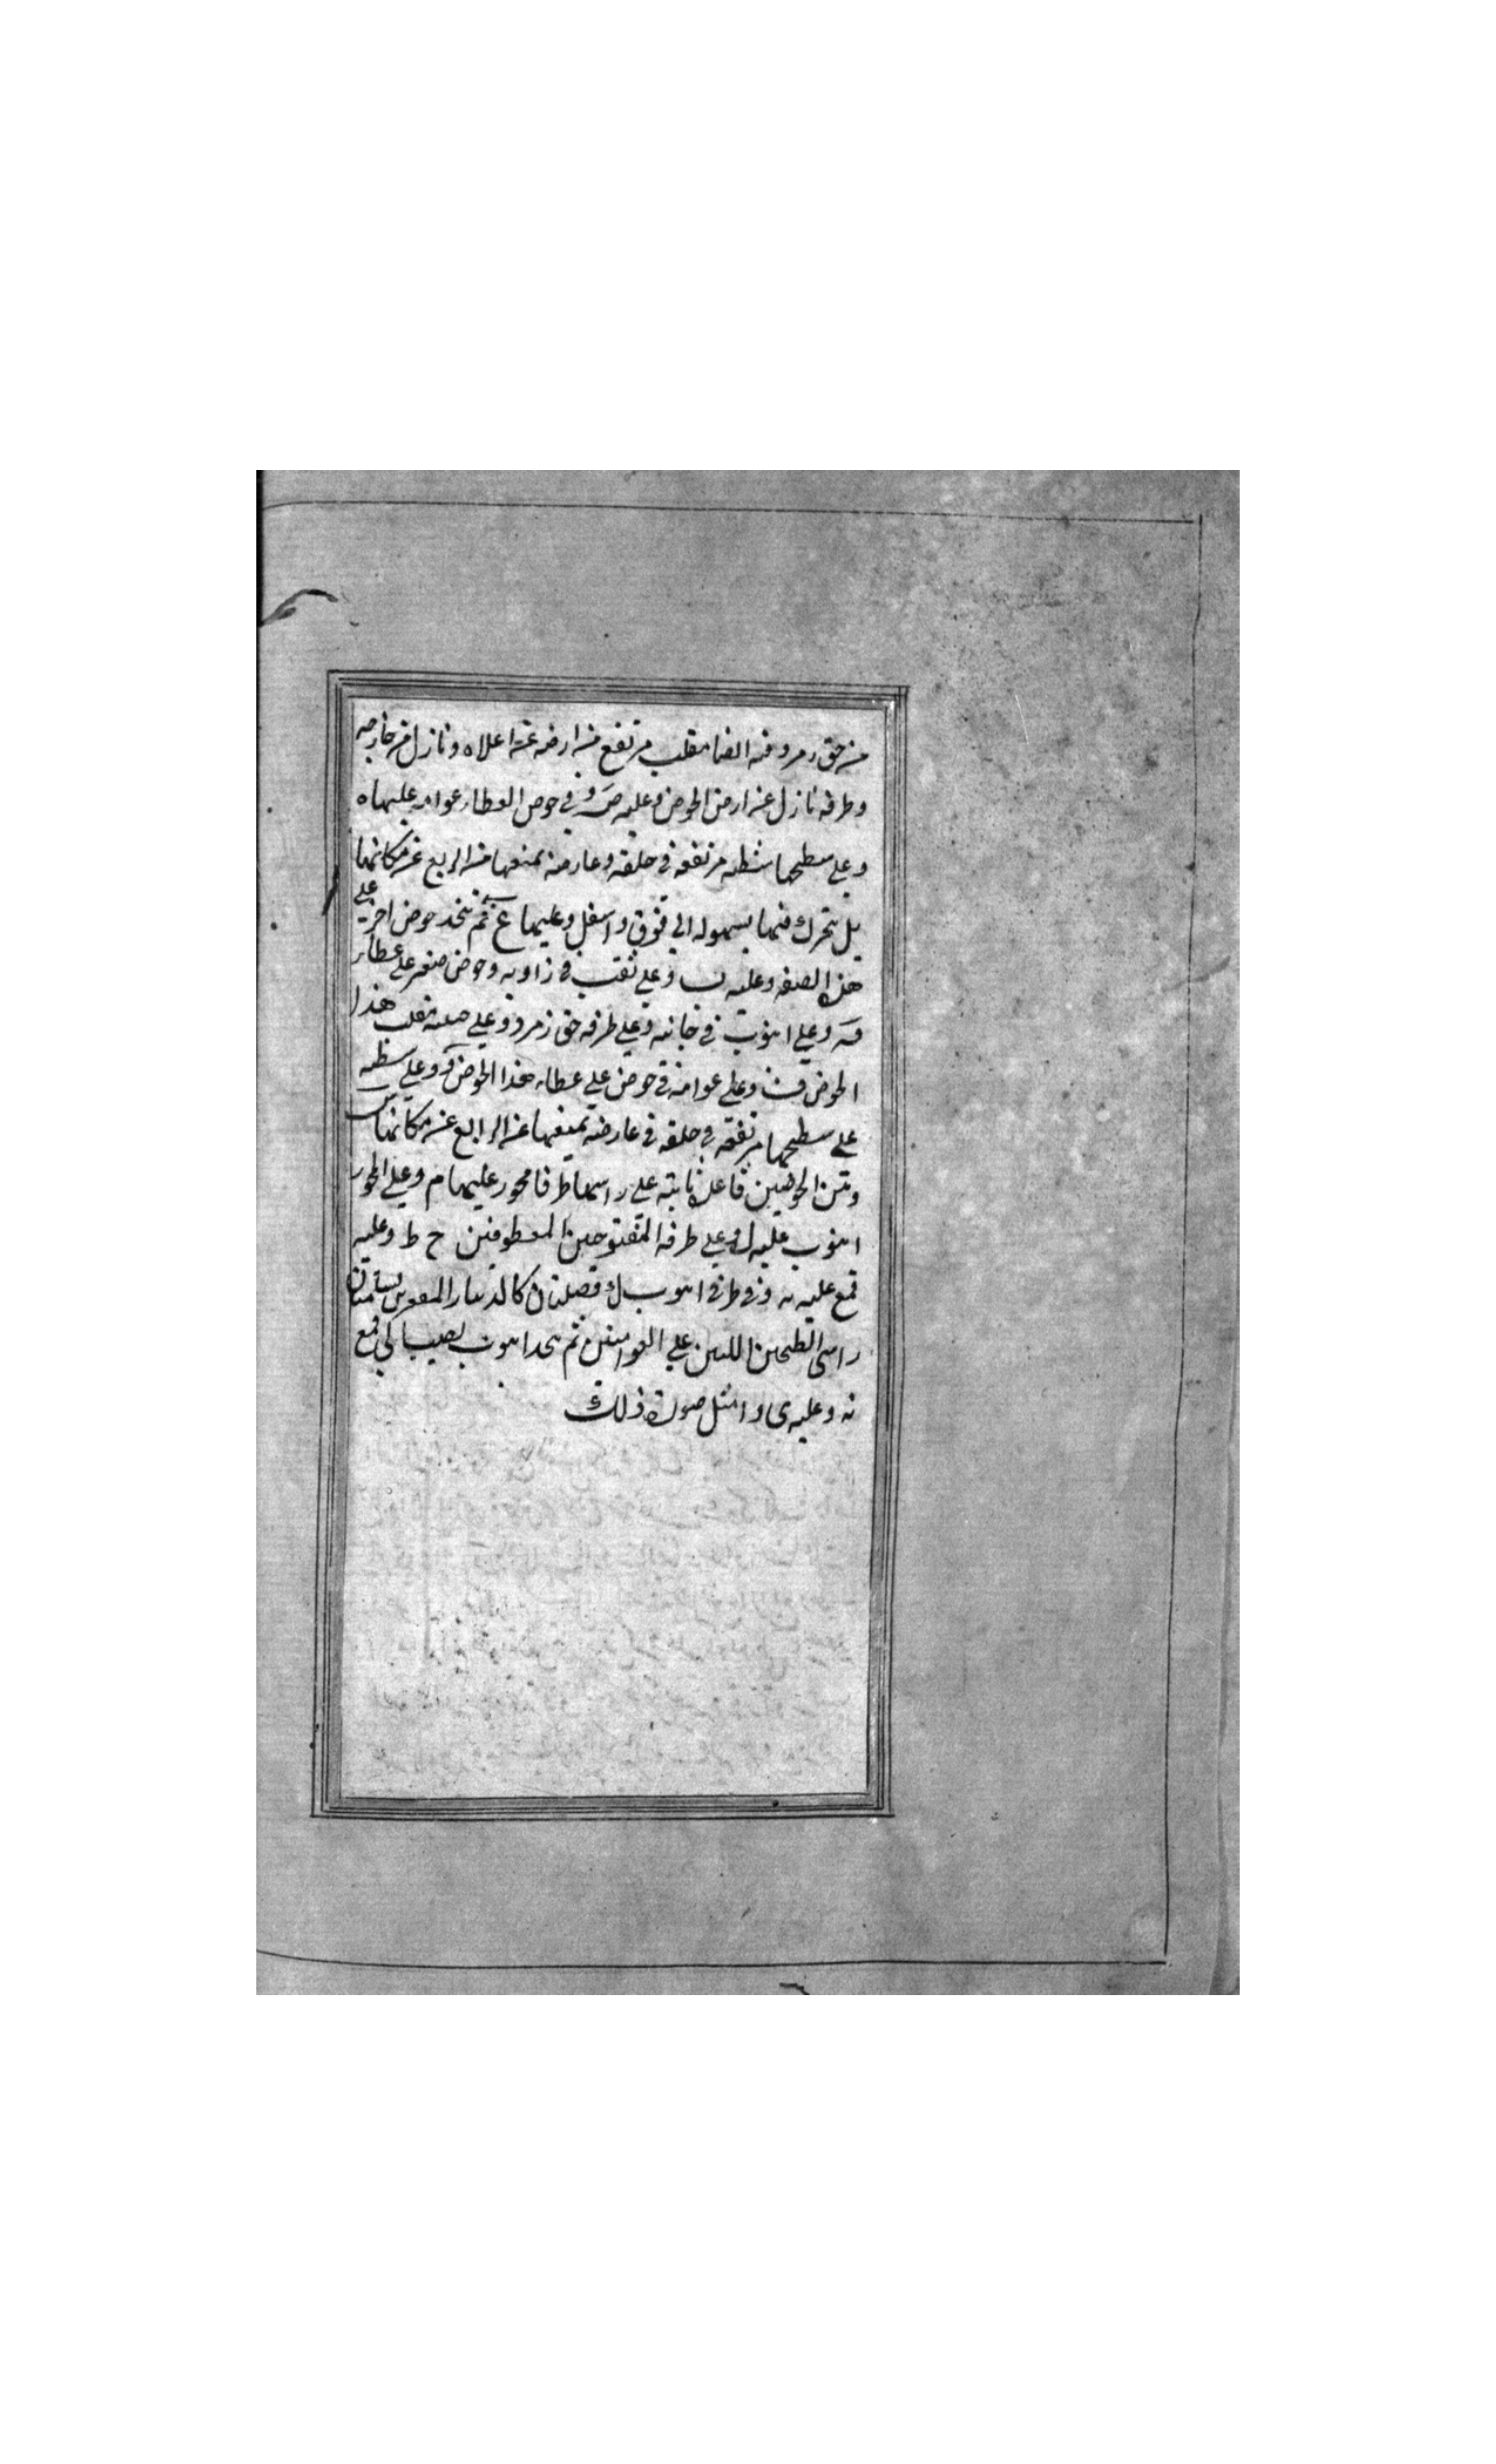 من حق زمر وفيه ايضا مقلب مرتفع من ارضه عن اعلاه ونازل من خارجه
وطرفه نازل عن ارض الحوض وعليه ص و في حوض العطا عوامه عليها ه
وعلى سطحها شظيه مرتفعه في حلقه وعارضه تمنعها من الربع عن مكانها
بل تتحرك فيها بسهوله الى فوق واسفل وعليها ع ثم يتخذ حوض اخر على
هذه الصفه وعليه ب وعلى ثقب في زاويه وحوض صغير على عطاء
وعلى انبوب في جانبه وعلى طرفه حق زمر و وعلى مقلب هذا
الحوض ف وعلى عوامه في حوض على عطاء هذا الحوض وعلى شظيه
على سطحها مرتفعه في حلقه في عارضه تمنعها عن الرابع عن مكانها
وبين الحوضين قاعده ثابته على راسها طرفا محور عليهما م وعلى المحور
انبوب عليه ل وعلى طرفه المفتوحين المعطوفين ح ط وعليه
قمع عليه نه وفي طرفي انبوب ل فصلتان كالدينار المقور يستمنان
راسى الطحين اللتين على العوامتين ثم يتخذ انبوب يصب الى قمع
نه وعليه ى وامثل صورة ذلك